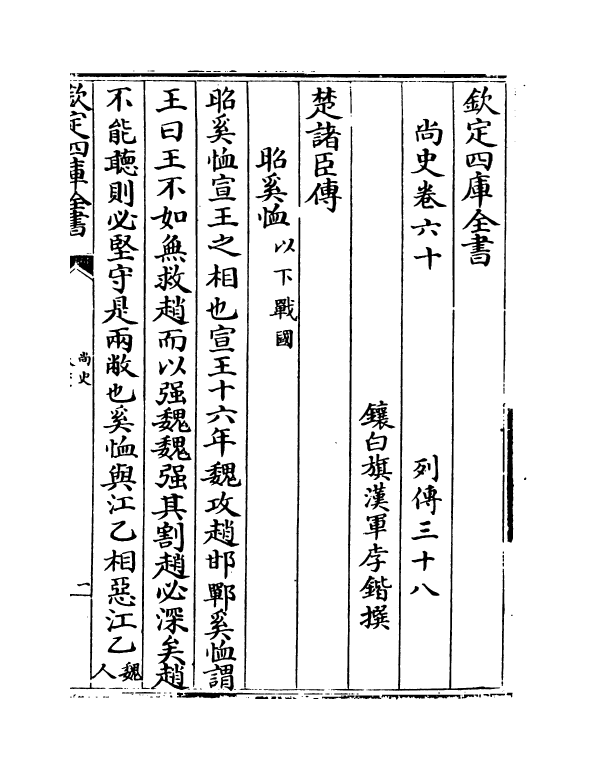 欽定四庫全書
尚史卷六十　列傳三十八
鑲白旗漢軍李鍇撰
楚諸臣傳
昭奚恤以下戰國
昭奚恤宣王之相也宣王十六年魏攻趙邯鄲奚恤謂
王曰王不如無救趙而以强魏魏强其割趙必深矣趙
不能聽則必堅守是兩敝也奚恤與江乙相惡江乙魏人
欽定四庫全書
尚史
二